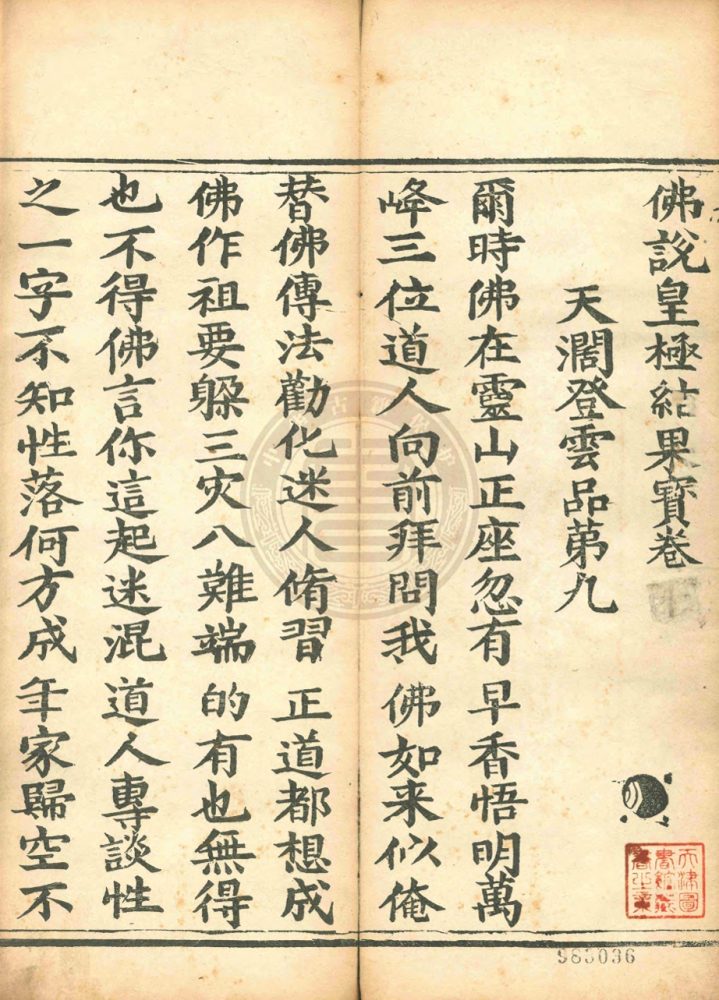 佛說皇極結果寳卷
天濶登雲品苐九
爾時佛在靈山正座忽有早香悟明萬
峰三位道人向前拜問我佛如来似俺
替佛傳法勸化迷人脩習正道都想成
佛作祖要躲三灾八難端的有也無得
也不得佛言你這起迷混道人專談性
之一字不知性落何方成年家歸空不
天津圖
書館藏
書之章
983036